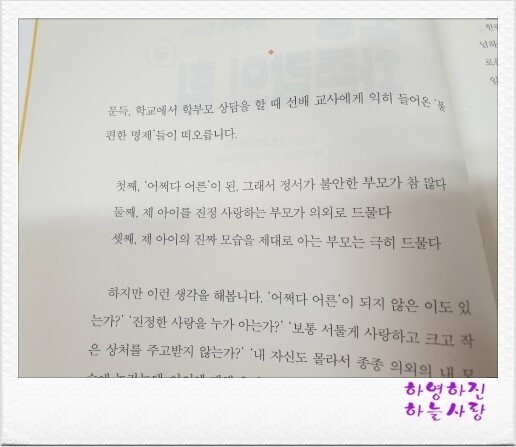 문득, 학교에서 학부모 상담을 할 때 선배 교사에게 익히 들어온 '불
편한 명제'들이 떠오릅니다.
첫째, '어쩌다 어른'이 된, 그래서 정서가 불안한 부모가 참 많다
둘째, 제 아이를 진정 사랑하는 부모가 의외로 드물다
셋째, 제 아이의 진짜 모습을 제대로 아는 부모는 극히 드물다
하지만 이런 생각을 해봅니다. '어쩌다 어른'이 되지 않은 이도 있
는가?' '진정한 사랑을 누가 아는가?' '보통 서툴게 사랑하고 크고 작
은 상처를 주고받지 않는가?' '내 자신도 몰라서 종종 의외의 내 모
하영하진
하늘사랑